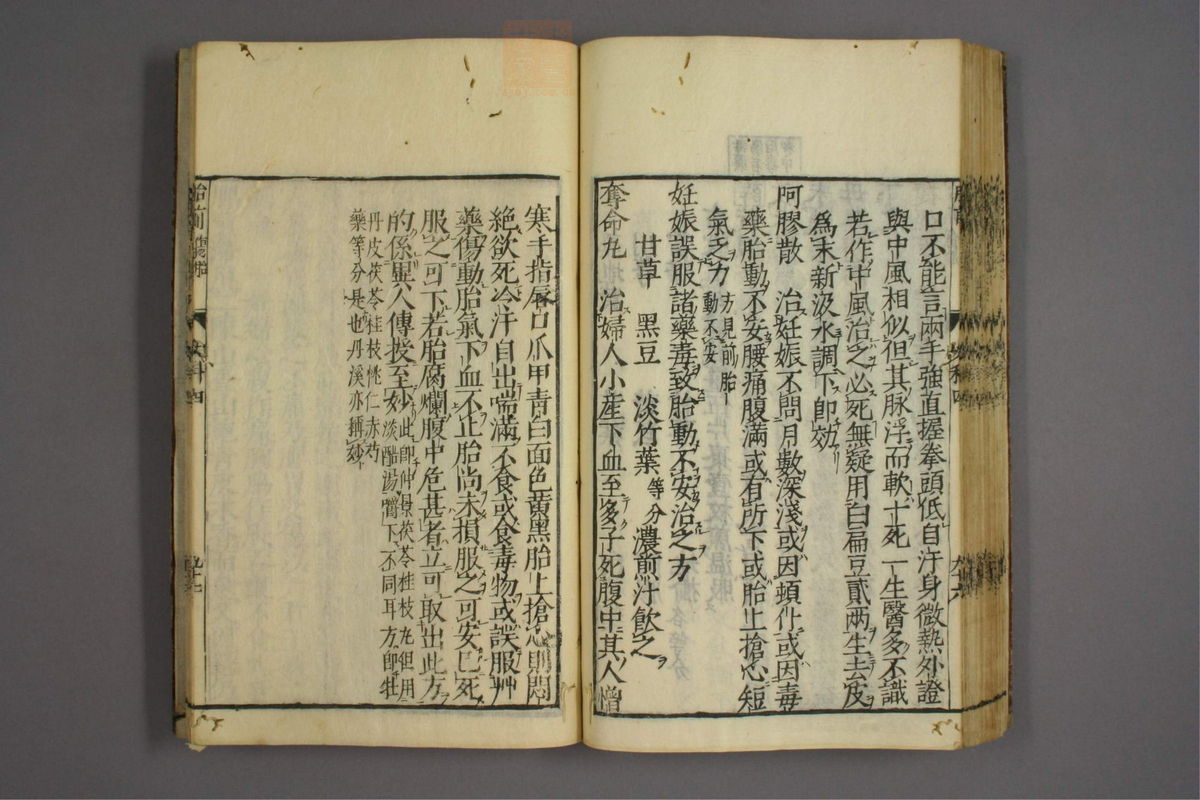 口不能言兩手強直握拳頭低自汗身微熱外證
與中風相似但其脉浮而軟十死一生醫多不識
若作中風治之必死無疑用白扁豆貳两生去皮
爲末新汲水調下即効
阿膠散 治妊娠不問月數深淺或因頓仆或因毒
藥胎動不安腰痛腹滿或有所下或胎上搶心短
氣乏力 方見前胎動不安
妊娠誤服諸藥毒致胎動不安治之方
甘草 黑豆 淡竹葉 等分 濃煎汁飲之
奪命丸 治婦人小產下血至多子死腹中其人憎
寒手指唇口爪甲青白面色黄黑胎上搶心則悶
絶欲死冷汗自出喘滿不食或食毒物或誤服艸
藥傷動胎氣下血不止胎尚未損服之可安已死
服之可下若胎腐爛腹中危甚者立可取出此方
的係異人傳授至妙 此即仲景茯苓桂枝丸但用淡醋湯嚥下不同耳方即牡
丹皮茯苓桂枝桃仁赤芍
藥等分是也丹溪亦稱妙
胎前
女科四
九十七
女科四
九十六